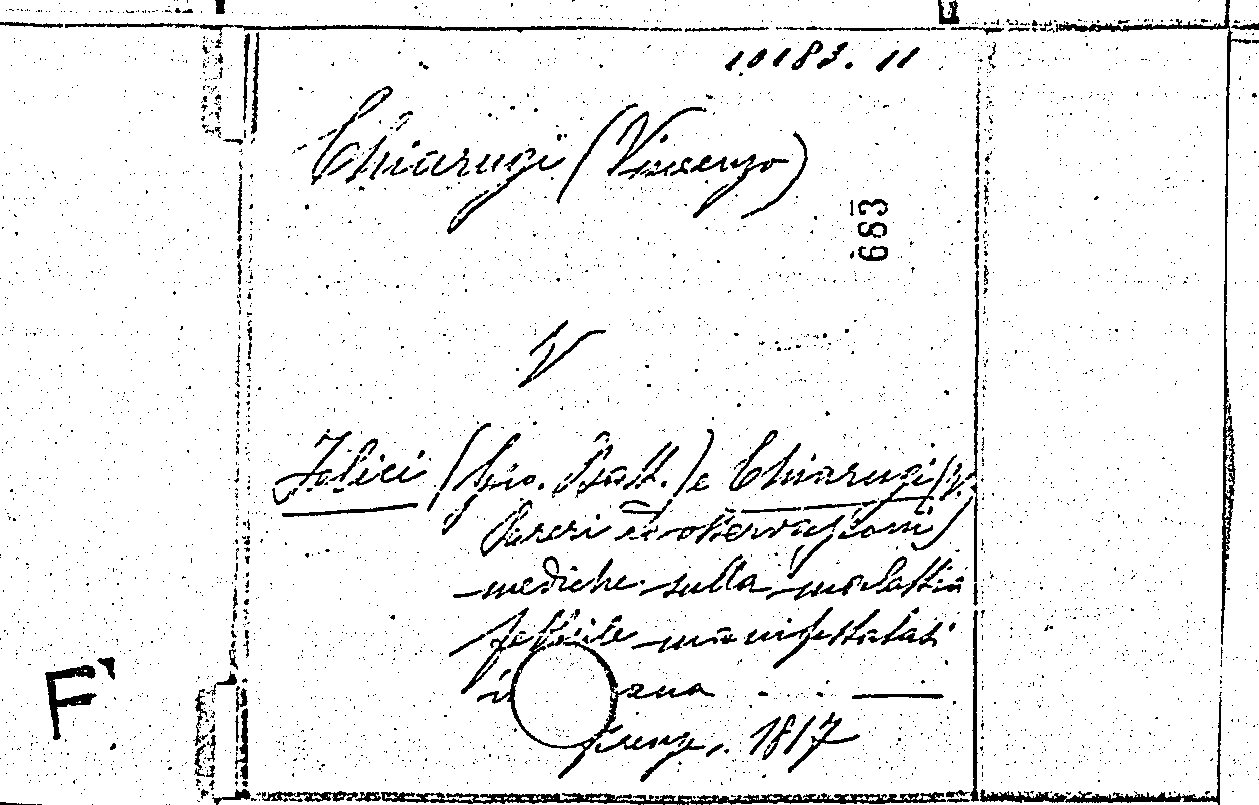 10183. 11
Chiarugi (Vincenzo)
663
V
Felici (Gio. Batt.) e Chiarugi (V.)
Pareri ed osservazioni
mediche sulla malattia
febbrile manifestatasi
in
Firenze, 1817
F